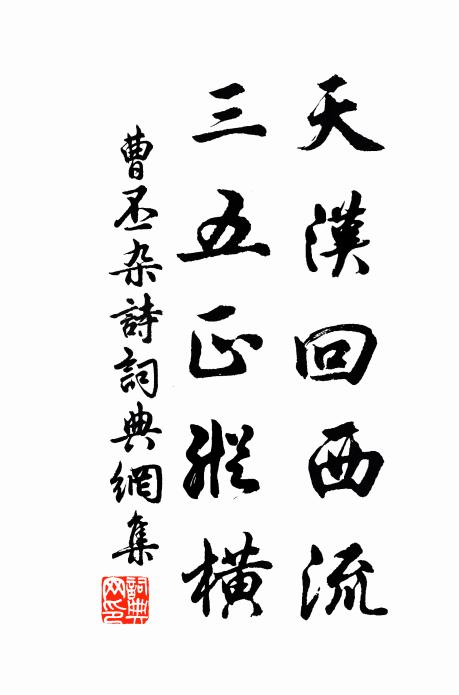 天漢回西流
三五正縱橫
曹丕杂詩詞典網集
詞典網印